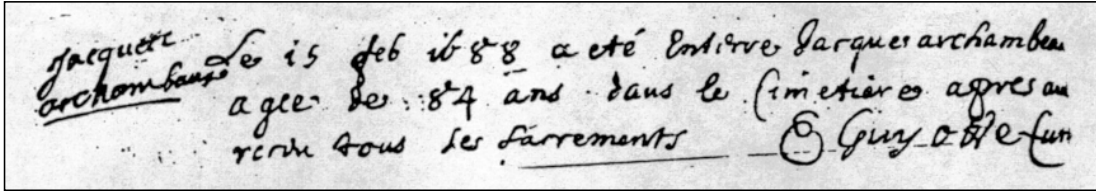 Jacques
archambault
Le 15 feb 1688 a eté Enterre Jacques archambau
agee de 84 ans dans le Cimetiere apres au
receu tous les sacrements Guyotte Cur